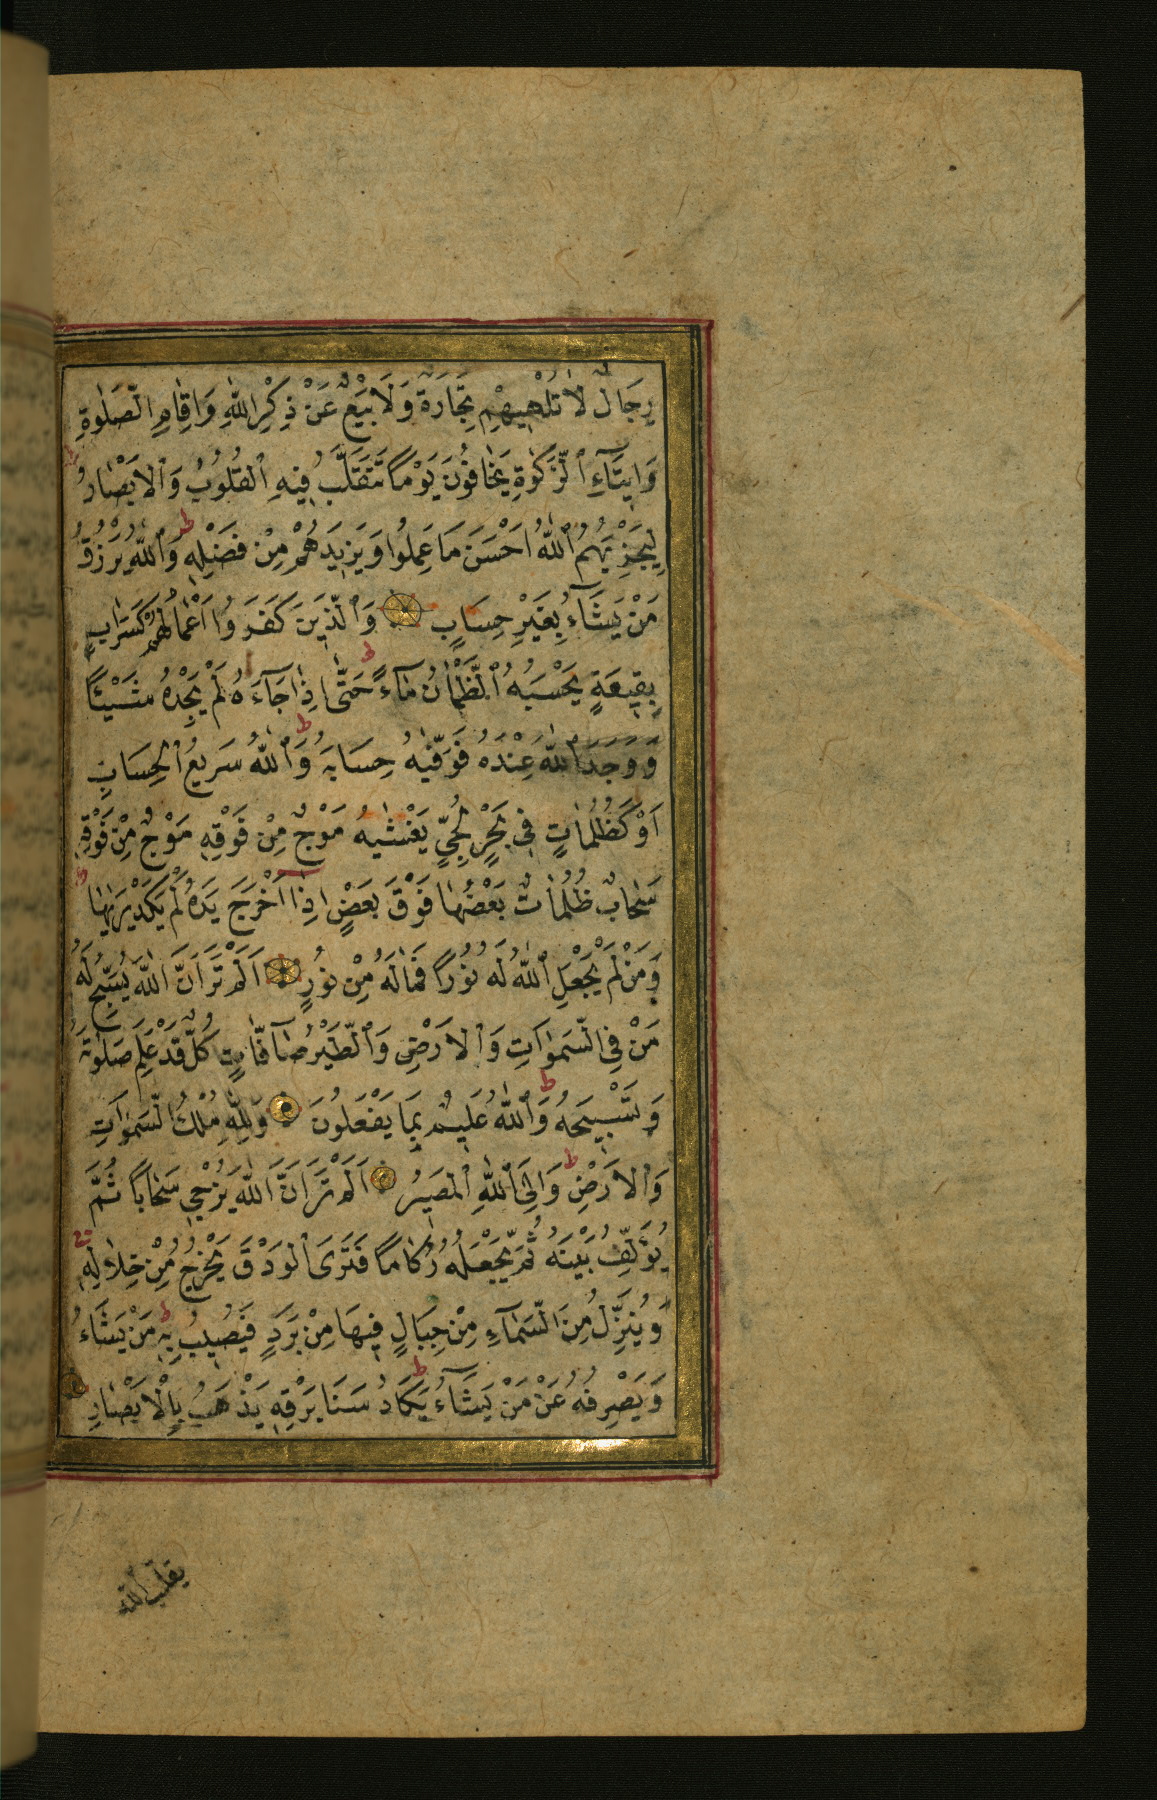 رِجَالٌ لَا تُلْهِيهِمْ تِجَارَةٌ وَلَا بَيْعٌ عَنْ ذِكْرِ اللّٰهِ وَاِقَامِ الصَّلٰوةِ
وَاِيتَاءِ الزَّكٰوةِ يَخَافُونَ يَوْمًا تَتَقَلَّبُ فِيهِ الْقُلُوبُ وَالْاَبْصَارُ
لِيَجْزِيَهُمُ اللّٰهُ اَحْسَنَ مَا عَمِلُوا وَيَزِيدَهُمْ مِنْ فَضْلِهِ ط وَاللّٰهُ يَرْزُقُ
مَنْ يَشَاءُ بِغَيْرِ حِسَابٍ وَالَّذِينَ كَفَرُوا اَعْمَالُهُمْ كَسَرَابٍ
بِقِيعَةٍ يَحْسَبُهُ الظَّمْاٰنُ مَاءً ط حَتّٰى اِذَا جَاءَهُ لَمْ يَجِدْهُ شَيْئًا
وَوَجَدَ اللّٰهَ عِنْدَهُ فَوَفّٰيهُ حِسَابَهُ ط وَاللّٰهُ سَرِيعُ الْحِسَابِ
اَوْ كَظُلُمَاتٍ فِي بَحْرٍ لُجِّيٍّ يَغْشٰيهُ مَوْجٌ مِنْ فَوْقِهِ مَوْجٌ مِنْ فَوْقِهِ
سَحَابٌ ظُلُمَاتٌ بَعْضُهَا فَوْقَ بَعْضٍ اِذَا اَخْرَجَ يَدَهُ لَمْ يَكَدْ يَرٰيهَا
وَمَنْ لَمْ يَجْعَلِ اللّٰهُ لَهُ نُورًا فَمَا لَهُ مِنْ نُورٍ اَلَمْ تَرَ اَنَّ اللّٰهَ يُسَبِّحُ لَهُ
مَنْ فِي السَّمٰوَاتِ وَالْاَرْضِ وَالطَّيْرُ صَافَّاتٍ كُلٌّ قَدْ عَلِمَ صَلَوتَهُ
وَتَسْبِيحَهُ ط وَاللّٰهُ عَلِيمٌ بِمَا يَفْعَلُونَ وَلِلّٰهِ مُلْكُ السَّمٰوَاتِ
وَالْاَرْضِ ط وَاِلَى اللّٰهِ الْمَصِيرُ اَلَمْ تَرَ اَنَّ اللّٰهَ يُزْجِي سَحَابًا ثُمَّ
يُؤَلِّفُ بَيْنَهُ ثُمَّ يَجْعَلُهُ رُكَامًا فَتَرَى الْوَدْقَ يَخْرُجُ مِنْ خِلَالِهِ
وَيُنَزِّلُ مِنَ السَّمَاءِ مِنْ جِبَالٍ فِيهَا مِنْ بَرَدٍ فَيُصِيبُ بِهِ مَنْ يَشَاءُ
وَيَصْرِفُهُ عَنْ مَنْ يَشَاءُ ط يَكَادُ سَنَا بَرْقِهِ يَذْهَبُ بِالْاَبْصَارِ
يقلب الله